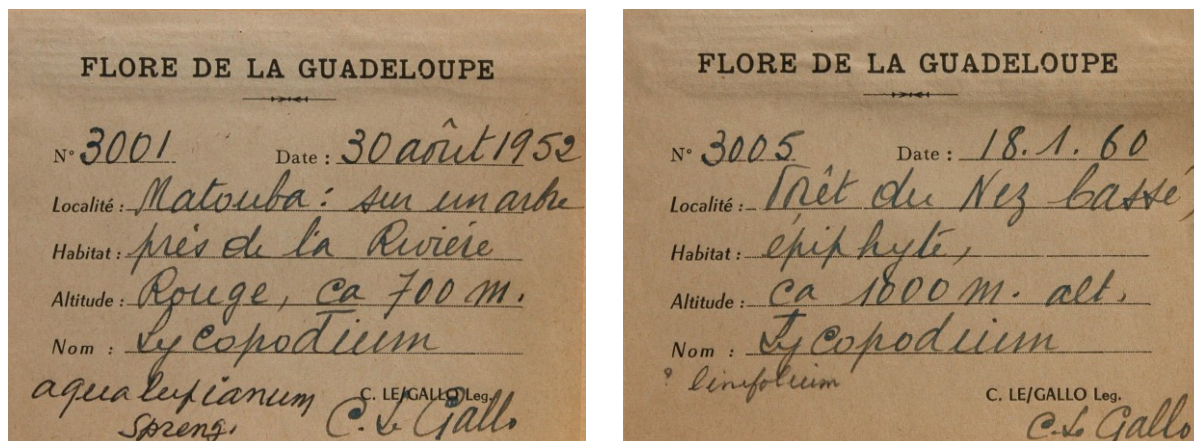 FLORE DE LA GUADELOUPE
N° 3001 Date : 30 août 1952
Localité : Matouba : sur un arbre
Habitat : près de la Rivière
Altitude : Rouge, ca 700 m.
Nom : Lycopodium
aqualupianum
Spreng.
C. LE/GALLO Leg.
C. Le Gallo
FLORE DE LA GUADELOUPE
N° 3005 Date : 18.1.60
Localité : Forêt du Nez Cassé,
Habitat : épiphyte,
Altitude : ca 1000 m. alt.
Nom : Lycopodium
? linifolium
C. LE/GALLO Leg.
C. Le Gallo